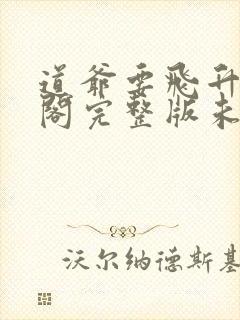 道爷要飞升
阁完整版未
沃尔纳德斯基